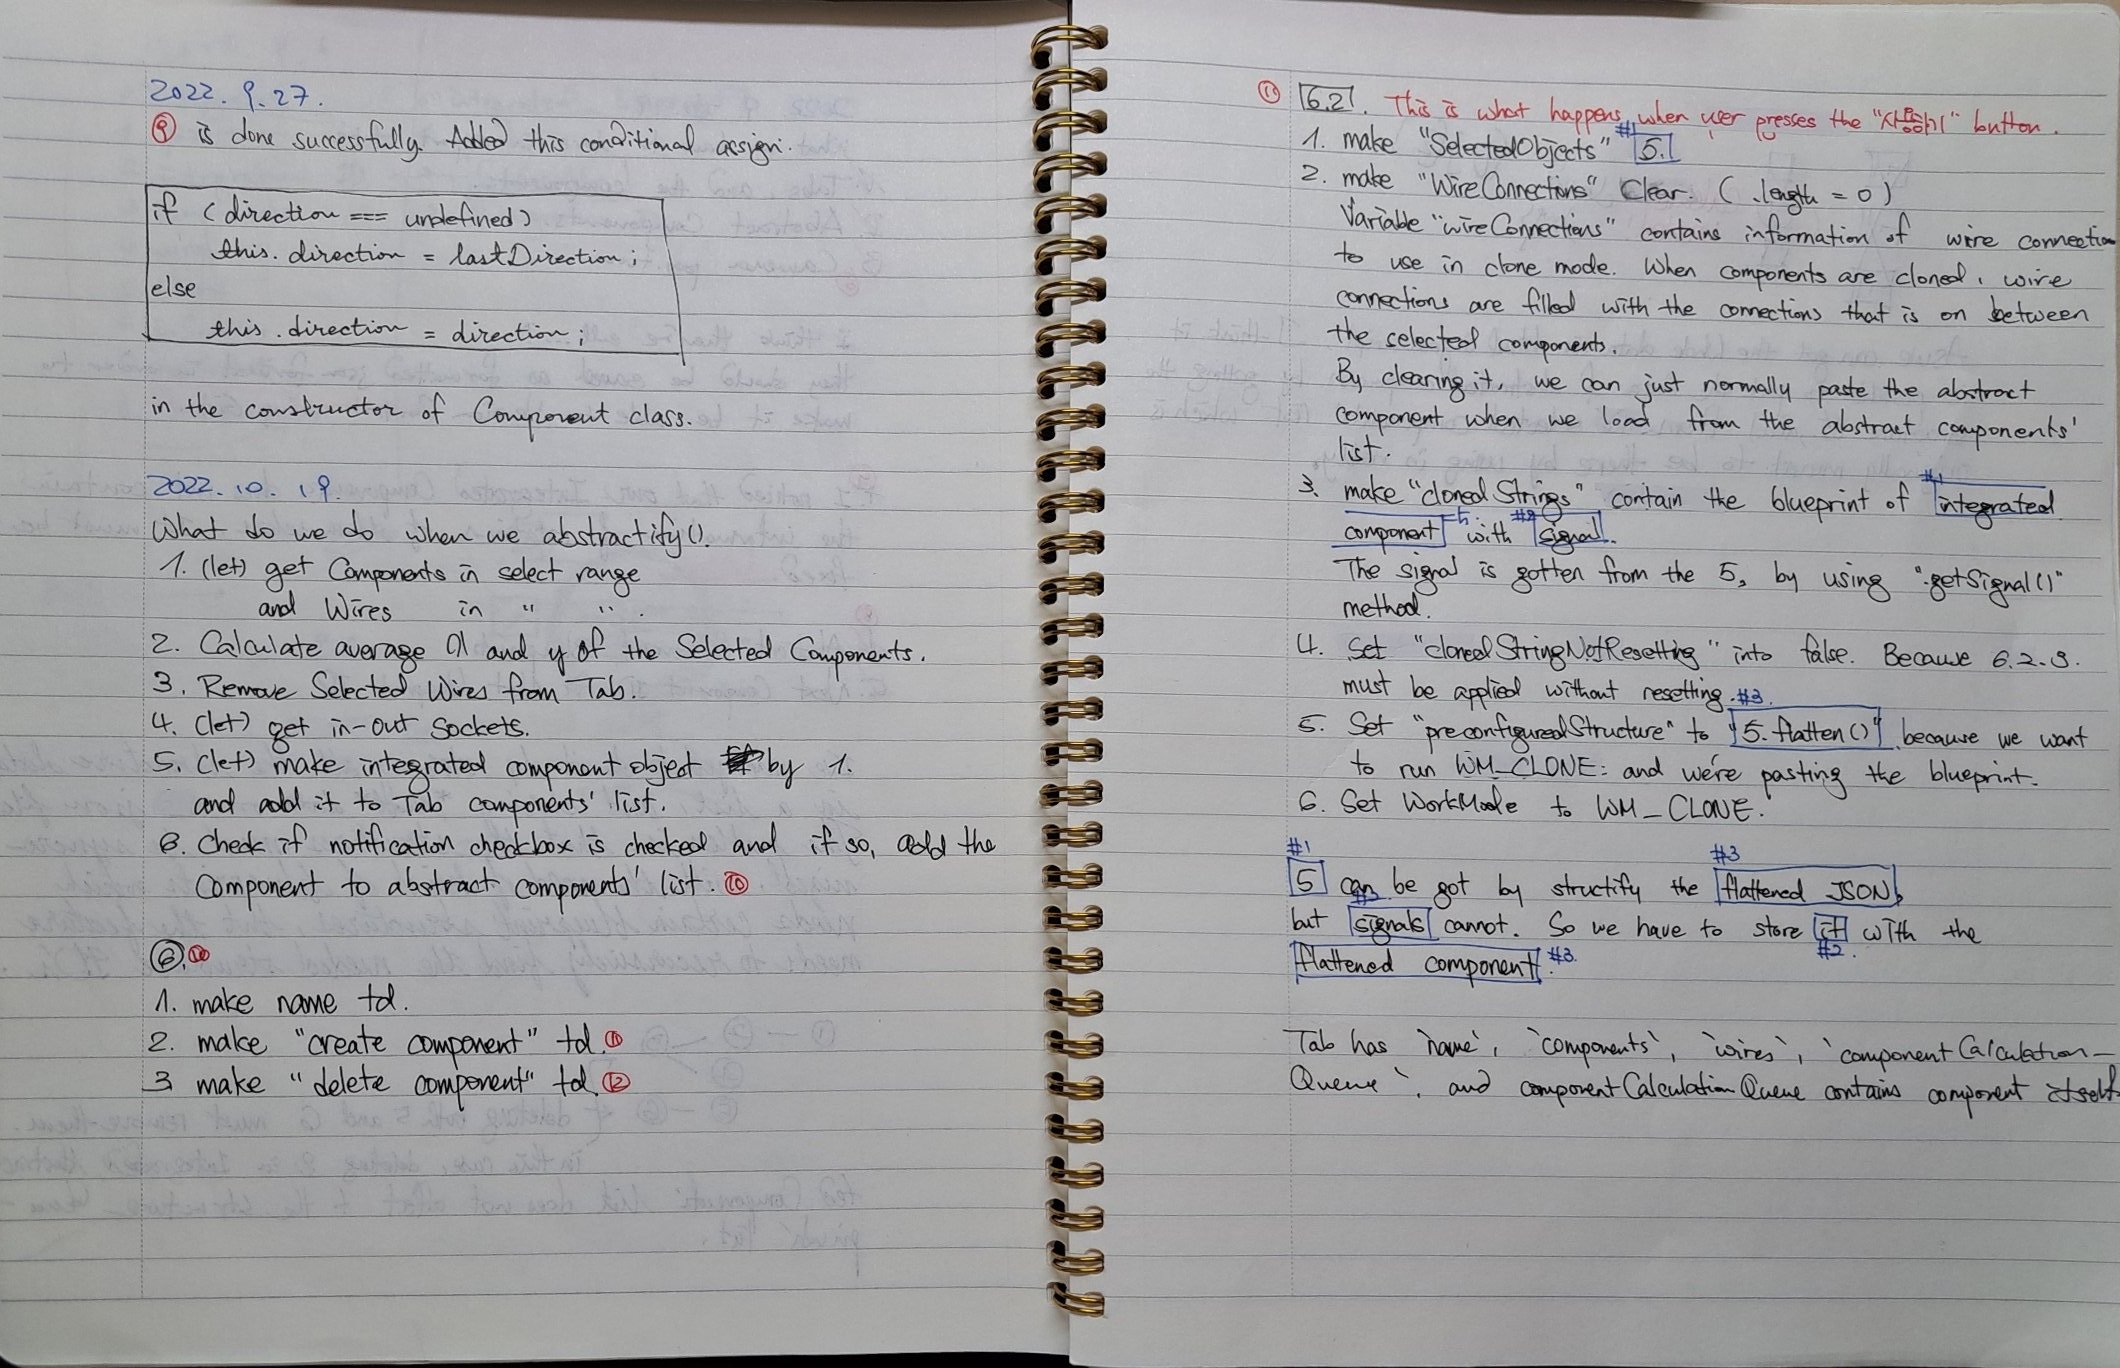 2022. 9. 27.
⑨ is done successfully. Added this conditional assign.
if (direction === undefined)
this.direction = lastDirection;
else
this.direction = direction;
in the constructor of Component class.
2022. 10. 19.
What do we do when we abstractify().
1. (let) get Components in select range
and Wires in " " .
2. Calculate average x and y of the Selected Components.
3. Remove Selected Wires from Tab.
4. (let) get in-out Sockets.
5. (let) make integrated component object by 1.
and add it to Tab components' list.
6. Check if notification checkbox is checked and if so, add the
Component to abstract components' list. ⑩
⑥.⑩
1. make name td.
2. make "create component" td. ⑪
3 make "delete component" td. ⑫
⑪ 6.2. This is what happens when user presses the "사용하기" button.
1. make "SelectedObjects" #1 5.
2. make "WireConnections" Clear. ( .length = 0 )
Variable "wireConnections" contains information of wire connection
to use in clone mode. When components are cloned, wire
connections are filled with the connections that is on between
the selected components.
By clearing it, we can just normally paste the abstract
component when we load from the abstract components'
list.
3. make "clonedStrings" contain the blueprint of #1 integrated
component =5 with #2 signal.
The signal is gotten from the 5, by using ".getSignal()"
method.
4. Set "clonedStringNotResetting" into false. Because 6.2.3.
must be applied without resetting. #3.
5. Set "preconfiguredStructure" to "5.flatten()" because we want
to run WM_CLONE: and we're pasting the blueprint.
6. Set WorkMode to WM_CLONE.
#1 #3
5 can be got by structify the flattened JSON,
#2
but signals cannot. So we have to store it with the
#2.
flattened component. #3.
Tab has `name`, `components`, `wires`, `componentCalculation-
Queue`, and componentCalculationQueue contains component itself.